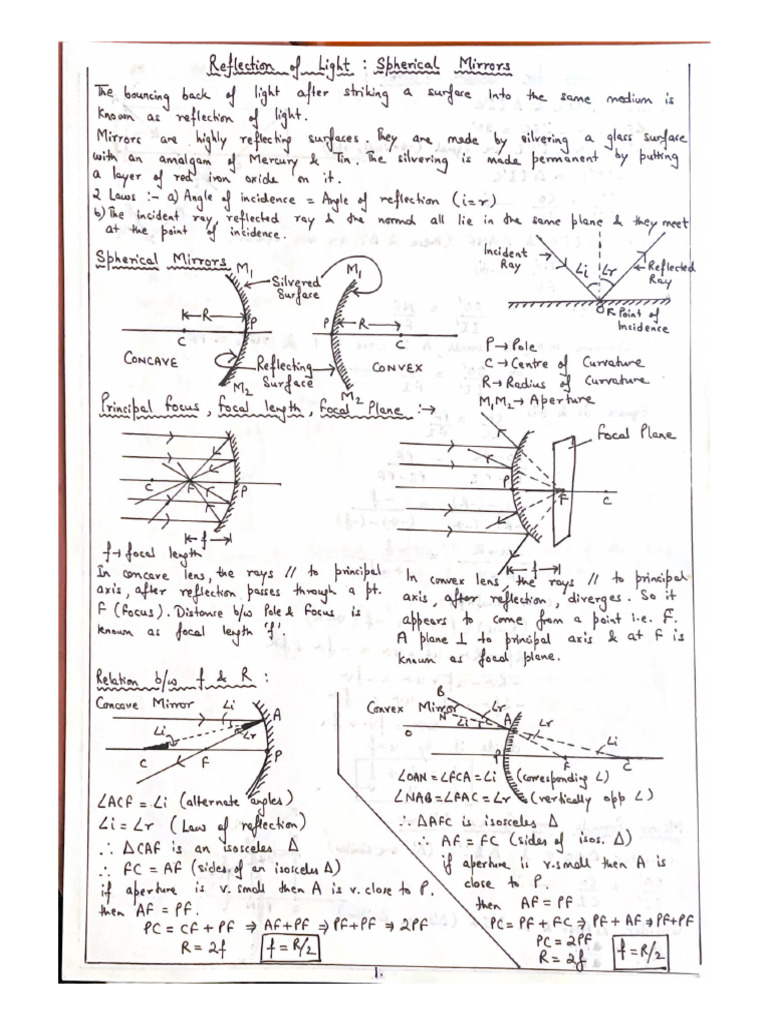 Reflection of Light : Spherical Mirrors
The bouncing back of light after striking a surface into the same medium is
known as reflection of light.
Mirrors are highly reflecting surfaces. They are made by silvering a glass surface
with an amalgam of Mercury & Tin. The silvering is made permanent by putting
a layer of red iron oxide on it.
2 Laws :- a) Angle of incidence = Angle of reflection (i=r)
b) The incident ray, reflected ray & the normal all lie in the same plane & they meet
at the point of incidence.
Incident
Ray
∠i
∠r
Reflected
Ray
O
Point of
Incidence
Spherical Mirrors
M1
Silvered
Surface
M1
R
P
C
CONCAVE
M2
Reflecting
Surface
P
R
C
CONVEX
M2
P → Pole
C → Centre of Curvature
R → Radius of Curvature
M1M2 → Aperture
Principal focus, focal length, focal Plane :→
C
F
P
f
f → focal length
P
F
C
f
Focal Plane
In concave lens, the rays // to principal
axis, after reflection passes through a pt.
F (focus). Distance b/w Pole & Focus is
known as focal length 'f'.
In convex lens, the rays // to principal
axis, after reflection, diverges. So it
appears to come from a point i.e. F.
A plane ⊥ to principal axis & at F is
known as focal plane.
Relation b/w f & R :
Concave Mirror
∠i
A
∠i
∠r
C
F
P
∠ACF = ∠i (alternate angles)
∠i = ∠r (Law of reflection)
∴ ΔCAF is an isosceles Δ
∴ FC = AF (sides of an isosceles Δ)
if aperture is v. small then A is v. close to P.
then AF = PF.
PC = CF + PF ⇒ AF+PF ⇒ PF+PF ⇒ 2PF
R = 2f
f = R/2
Convex Mirror
B
∠r
N
∠i
A
∠r
∠i
O
P
F
C
∠OAN = ∠FCA = ∠i (corresponding ∠)
∠NAB = ∠FAC = ∠r (vertically opp ∠)
∴ ΔAFC is isosceles Δ
∴ AF = FC (sides of isos. Δ)
if aperture is v. small then A is
close to P.
then AF = PF
PC = PF + FC ⇒ PF + AF ⇒ PF+PF
PC = 2PF
R = 2f
f = R/2
1.